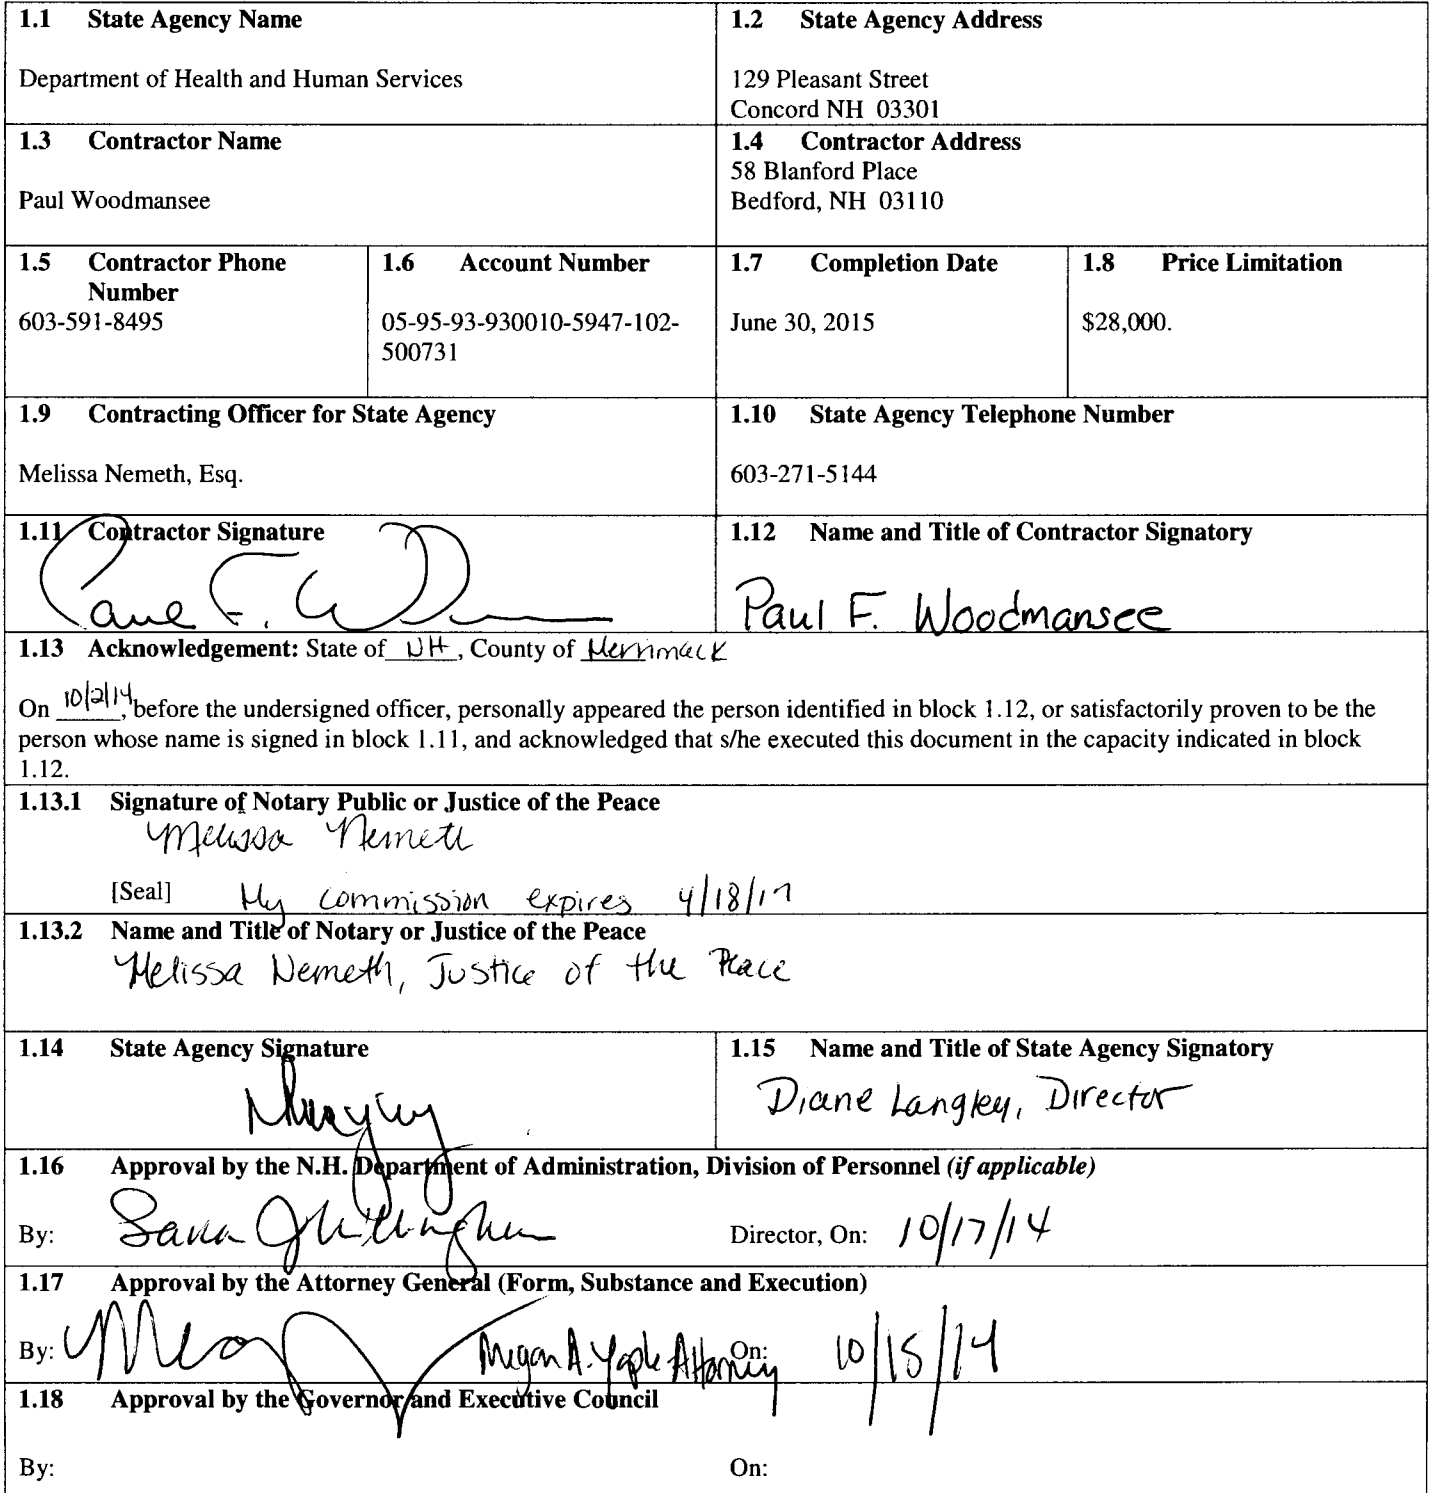 1.1 State Agency Name
Department of Health and Human Services
1.2 State Agency Address
129 Pleasant Street
Concord NH 03301
1.3 Contractor Name
Paul Woodmansee
1.4 Contractor Address
58 Blanford Place
Bedford, NH 03110
1.5 Contractor Phone
Number
603-591-8495
1.6 Account Number
05-95-93-930010-5947-102-
500731
1.7 Completion Date
June 30, 2015
1.8 Price Limitation
$28,000.
1.9 Contracting Officer for State Agency
Melissa Nemeth, Esq.
1.10 State Agency Telephone Number
603-271-5144
1.11 Contractor Signature
1.12 Name and Title of Contractor Signatory
Paul F. Woodmansee
1.13 Acknowledgement: State of NH, County of Merrimack
On 10/2/14, before the undersigned officer, personally appeared the person identified in block 1.12, or satisfactorily proven to be the
person whose name is signed in block 1.11, and acknowledged that s/he executed this document in the capacity indicated in block
1.12.
1.13.1 Signature of Notary Public or Justice of the Peace
Melissa Nemeth
[Seal] My commission expires 4/18/17
1.13.2 Name and Title of Notary or Justice of the Peace
Melissa Nemeth, Justice of the Peace
1.14 State Agency Signature
1.15 Name and Title of State Agency Signatory
Diane Langley, Director
1.16 Approval by the N.H. Department of Administration, Division of Personnel (if applicable)
By: Director, On: 10/17/14
1.17 Approval by the Attorney General (Form, Substance and Execution)
By: Megan A. Yaple Attorney On: 10/15/14
1.18 Approval by the Governor and Executive Council
By: On: